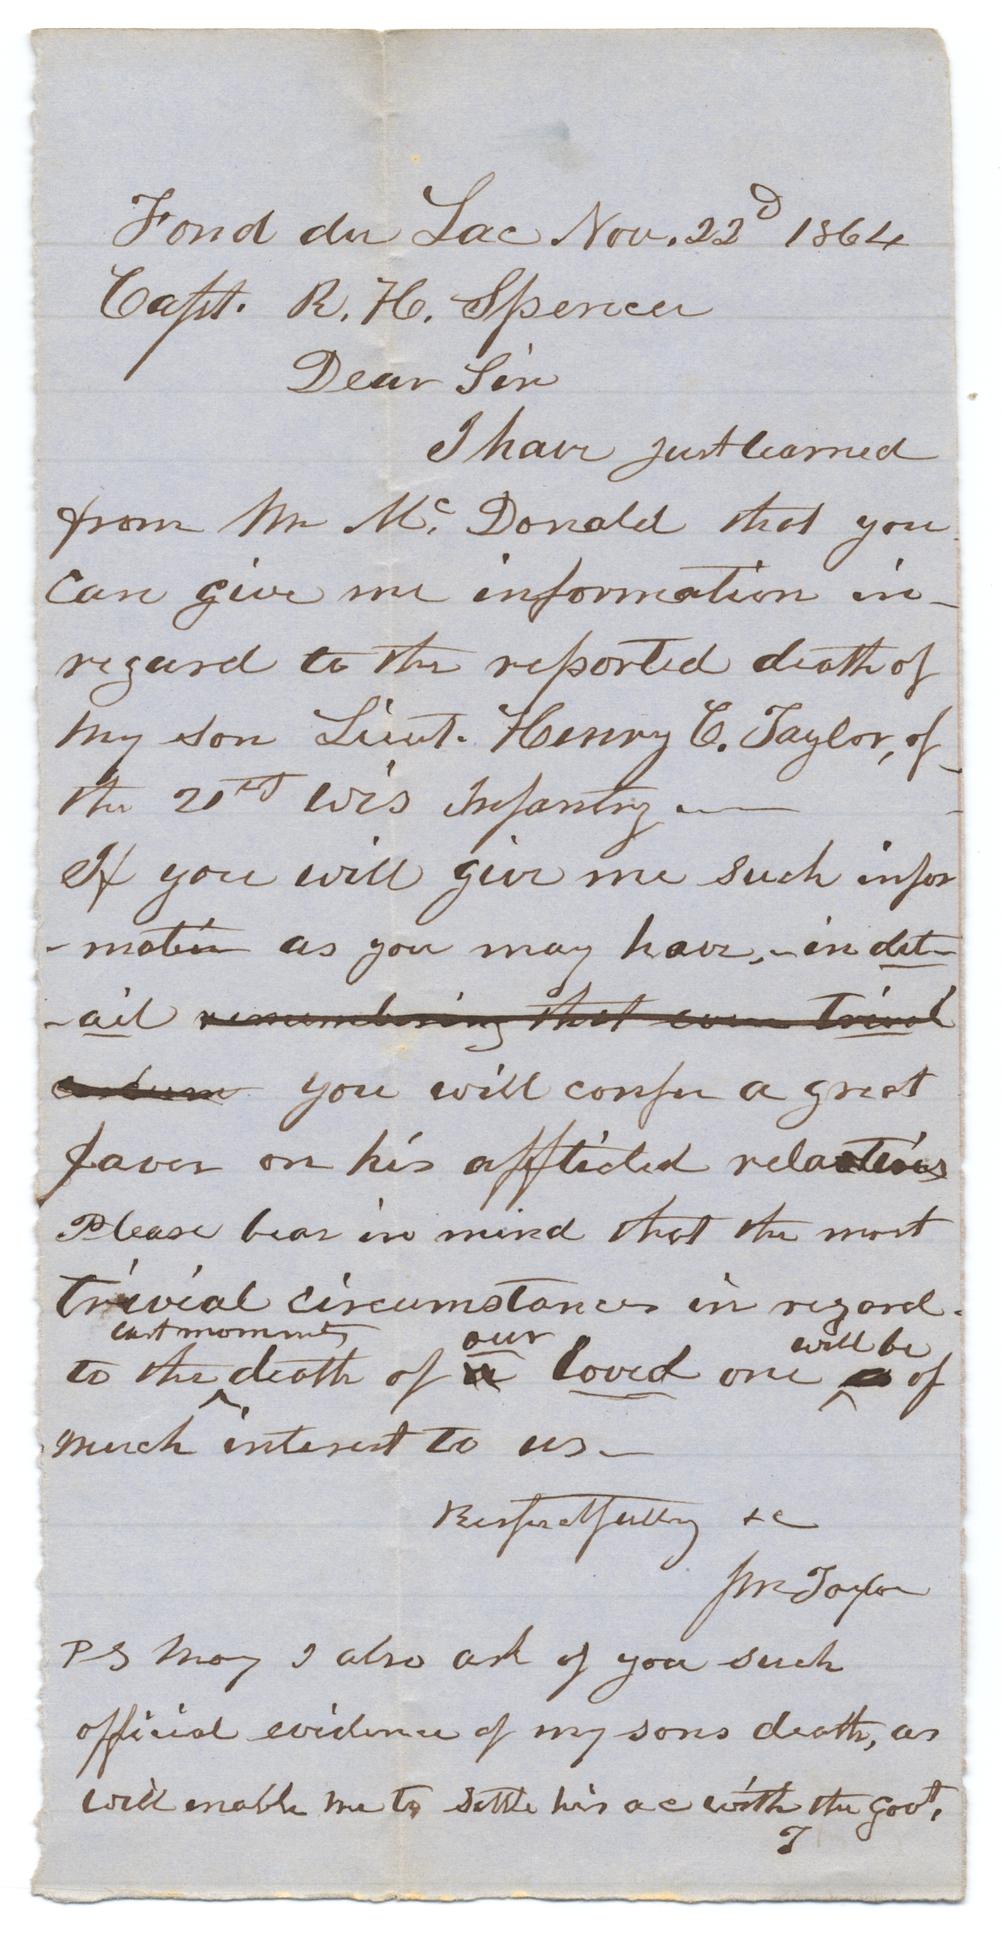 Fond du Lac Nov. 22d 1864
Capt. R. H. Spencer
Dear Sir
I have just learned
from Mr Mc. Donald that you
can give me information in-
regard to the reported death of
my son Lieut. Henry C. Taylor, of
the 21st Wis Infantry —
If you will give me such infor
-mation as you may have, - in det-
-ail remembering that even trivial
you will confer a great
favor on his afflicted relatives
Please bear in mind that the most
trivial circumstances in regard
last moments our will be
to the death of a loved one of
much interest to us —
Respectfully &c
Taylor
PS May I also ask of you such
official evidence of my sons death, as
will enable me to settle his ac with the Govt.
T